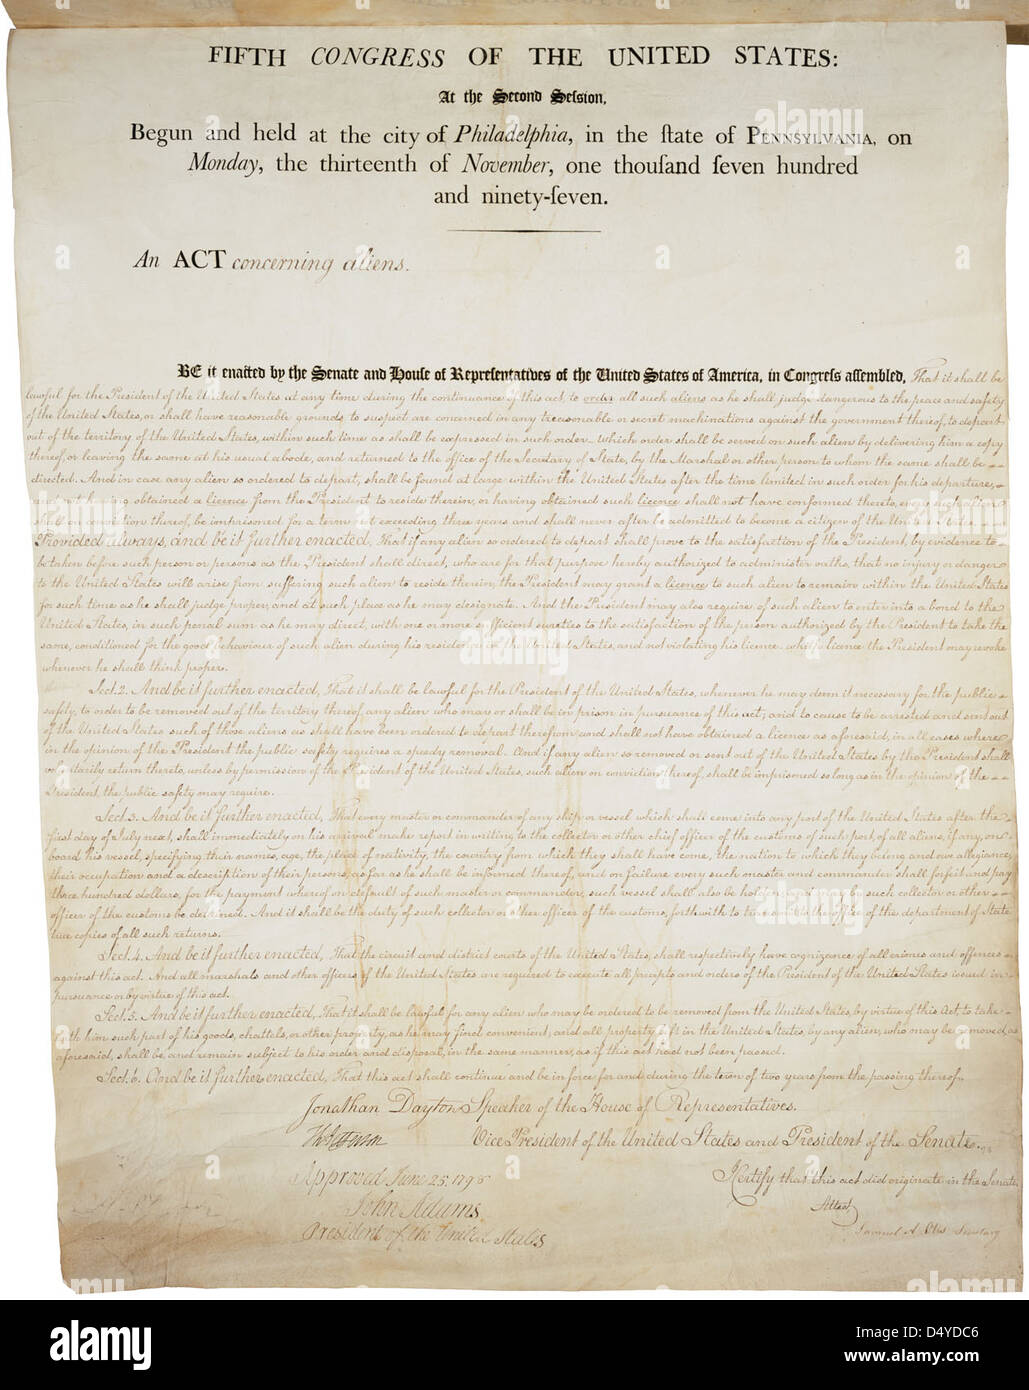 FIFTH CONGRESS OF THE UNITED STATES:
At the Second Seſsion,
Begun and held at the city of Philadelphia, in the ſtate of PENNSYLVANIA, on
Monday, the thirteenth of November, one thouſand ſeven hundred
and ninety-ſeven.
An ACT concerning aliens.
BE it enacted by the Senate and House of Representatives of the United States of America, in Congress aſſembled, That it shall be
lawful for the President of the United States at any time during the continuance of this act to order all such aliens as he shall judge dangerous to the peace and safety
of the United States, or shall have reasonable grounds to suspect are concerned in any treasonable or secret machinations against the government thereof, to depart
out of the territory of the United States, within such time as shall be expressed in such order. Which order shall be served on such alien by delivering him a copy
thereof, or leaving the same at his usual abode, and returned to the office of the Secretary of State, by the Marshal or other person to whom the same shall be
directed. And in case any alien so ordered to depart, shall be found at large within the United States after the time limited in such order for his departure,
and not having obtained a licence from the President to reside therein, or having obtained such licence shall not have conformed thereto, every such alien
shall on conviction thereof, be imprisoned for a term not exceeding three years and shall never after be admitted to become a citizen of the United States.
Provided always, and be it further enacted, That if any alien so ordered to depart shall prove to the satisfaction of the President, by evidence to
be taken before such person or persons as the President shall direct, who are for that purpose hereby authorized to administer oaths, that no injury or danger
to the United States will arise from suffering such alien to reside therein, the President may grant a licence to such alien to remain within the United States
for such time as he shall judge proper, and at such place as he may designate. And the President may also require of such alien to enter into a bond to the
United States, in such penal sum as he may direct, with one or more sufficient sureties to the satisfaction of the person authorized by the President to take the
same, conditioned for the good behaviour of such alien during his residence in the United States, and not violating his licence. which licence the President may revoke
whenever he shall think proper.
Sect. 2. And be it further enacted, That it shall be lawful for the President of the United States, whenever he may deem it necessary for the public
safety, to order to be removed out of the territory thereof, any alien who may or shall be in prison in pursuance of this act; and to cause to be arrested and sent out
of the United States such of those aliens as shall have been ordered to depart therefrom and shall not have obtained a licence as aforesaid, in all cases where
in the opinion of the President the public safety requires a speedy removal. And if any alien so removed or sent out of the United States by the President shall
voluntarily return thereto, unless by permission of the President of the United States, such alien on conviction thereof, shall be imprisoned so long as in the opinion of the
President, the public safety may require.
Sect. 3. And be it further enacted, That every master or commander of any ship or vessel which shall come into any port of the United States after the
first day of July next, shall immediately on his arrival make report in writing to the collector or other chief officer of the customs of such port of all aliens, if any, on
board his vessel, specifying their names, age, the place of nativity, the country from which they shall have come, the nation to which they belong and owe allegiance,
their occupation and a description of their persons, as far as he shall be informed thereof, and on failure every such master and commander shall forfeit and pay
three hundred dollars, for the payment whereof on default of such master or commander, such vessel shall also be holden, and may by such collector or other
officer of the customs be detained. And it shall be the duty of such collector or other officer of the customs, forthwith to transmit to the office of the department of State
true copies of all such returns.
Sect. 4. And be it further enacted, That the circuit and district courts of the United States, shall respectively have cognizance of all crimes and offences
against this act. And all marshals and other officers of the United States are required to execute all precepts and orders of the President of the United States issued in
pursuance or by virtue of this act.
Sect. 5. And be it further enacted, That it shall be lawful for any alien who may be ordered to be removed from the United States, by virtue of this Act to take
with him such part of his goods, chattels, or other property, as he may find convenient; and all property left in the United States by any alien, who may be removed, as
aforesaid, shall be, and remain subject to his order and disposal, in the same manner, as if this act had not been passed.
Sect. 6. And be it further enacted, That this act shall continue and be in force for and during the term of two years from the passing thereof.
Jonathan Dayton Speaker of the House of Representatives.
Th Jefferson Vice President of the United States and President of the Senate.
Approved June 25. 1798
I Certify that this act did originate in the Senate
John Adams
Attest,
President of the United States
Samuel A. Otis Secretary
alamy
Image ID: D4YDC6
www.alamy.com